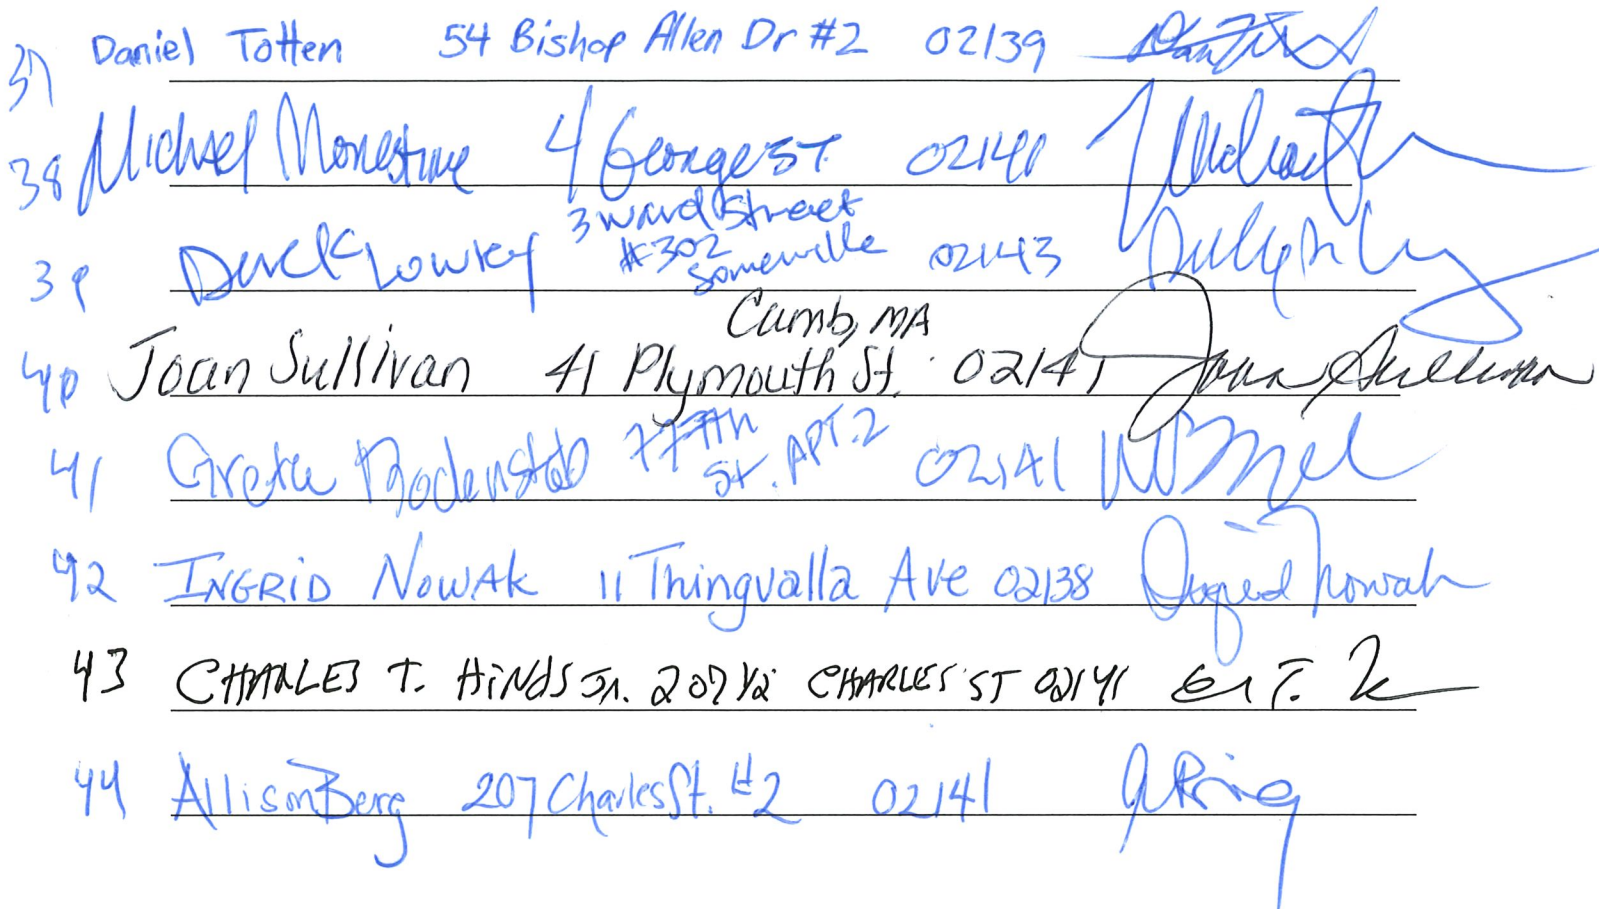 37 Daniel Totten 54 Bishop Allen Dr #2 02139
38 Michael Monestime 4 George ST. 02140
3 Ward Street
39 Derek Lowkey #302 Somerville 02143
Camb, MA
40 Joan Sullivan 41 Plymouth St. 02141 Joan Sullivan
41 Greta 77 7th St. APT. 2 02141
42 INGRID NOWAK 11 Thingvalla Ave 02138 Ingrid Nowak
43 CHARLES T. HINDS JR. 207 1/2 CHARLES ST 02141
44 Allison Berg 207 Charles St. #2 02141